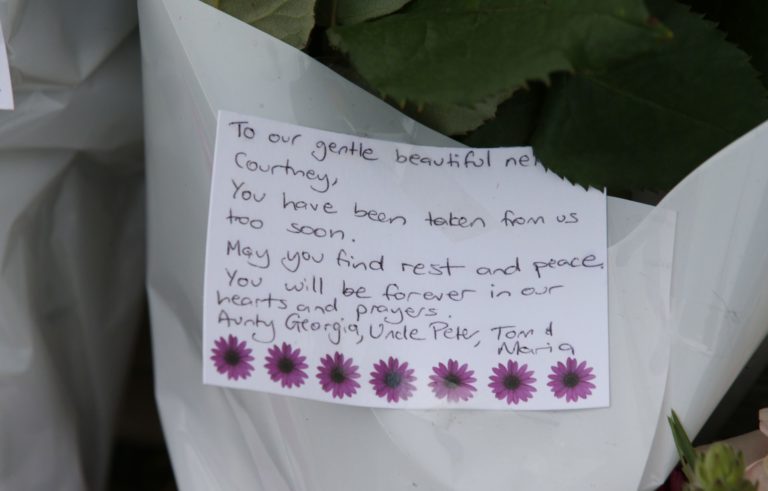 To our gentle beautiful
Courtney,
You have been taken from us
too soon.
May you find rest and peace.
You will be forever in our
hearts and prayers.
Aunty Georgia, Uncle Peter, Tom &
Maria